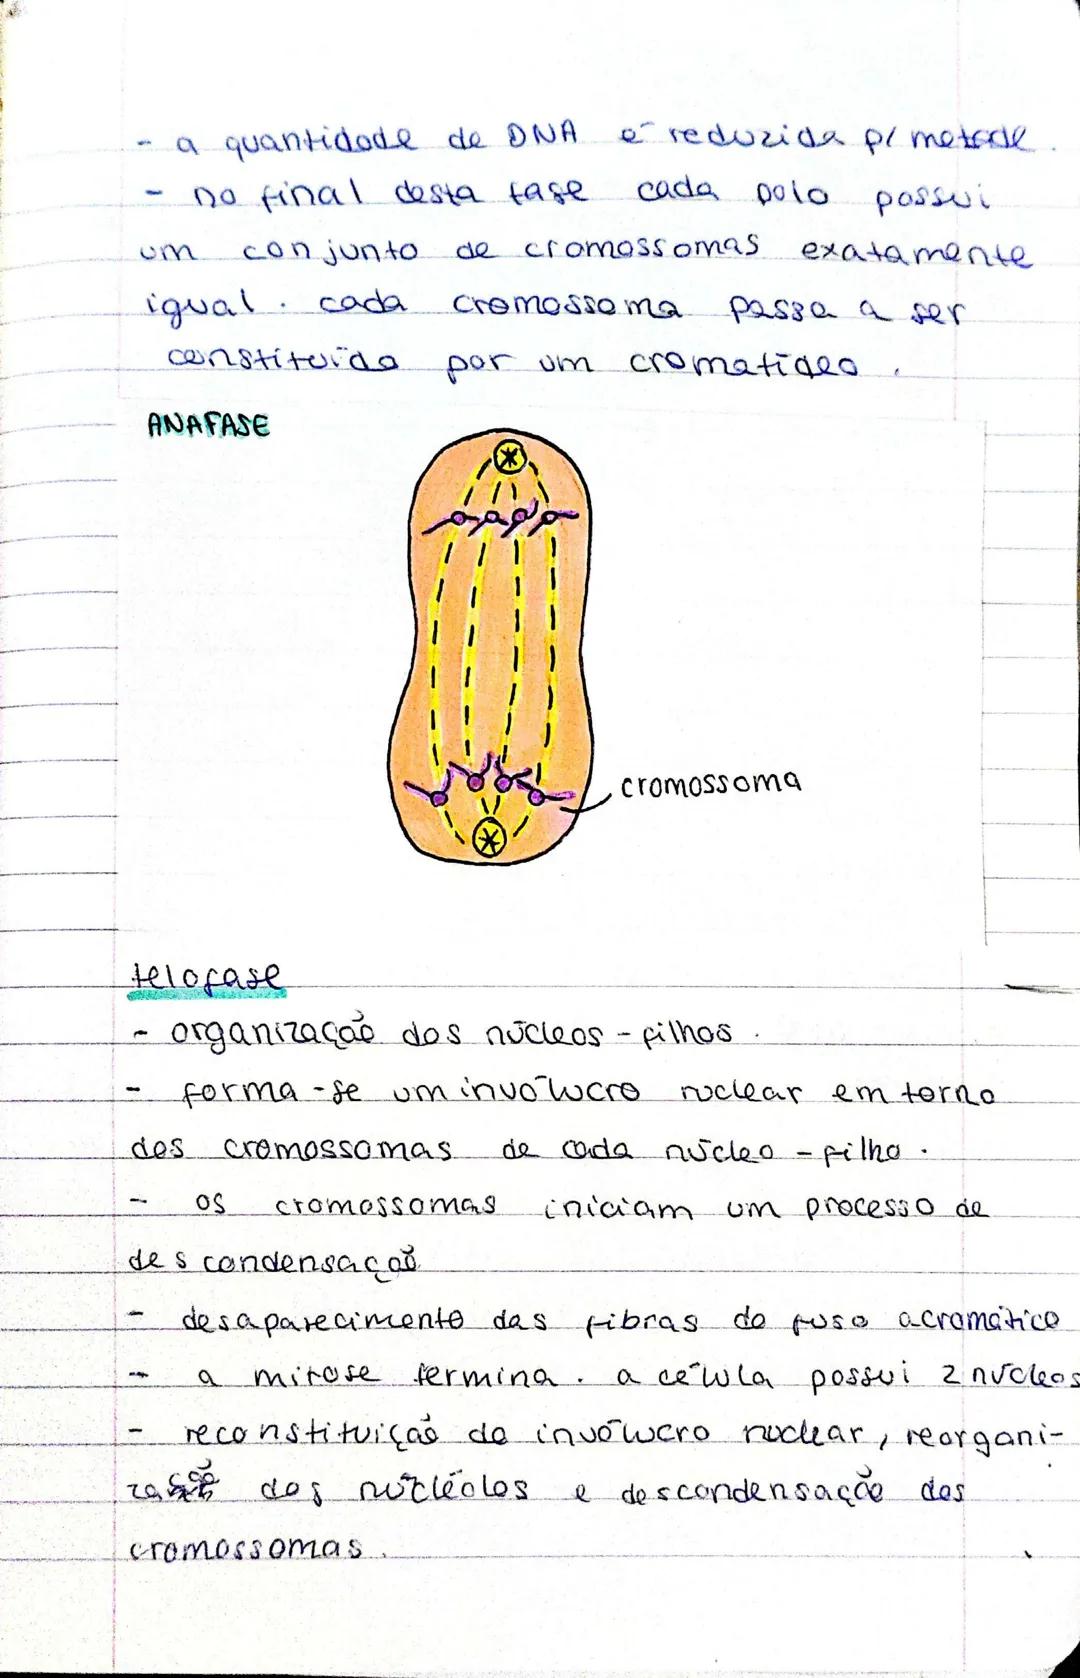 - a quantidade de DNA é reduzida p/ metade.
- no final desta fase cada polo possui
um conjunto de cromossomas exatamente
igual. cada cromossoma passa a ser
constituído por um cromatídeo.
ANAFASE
cromossoma
telofase
- organização dos núcleos-filhos.
- forma-se um invólucro nuclear em torno
dos cromossomas de cada núcleo-filho.
- os cromossomas iniciam um processo de
descondensação
- desaparecimento das fibras do fuso acromático
- a mitose termina. a célula possui 2 núcleos
- reconstituição do invólucro nuclear, reorgani-
zação dos nucléolos e descondensação dos
cromossomas.